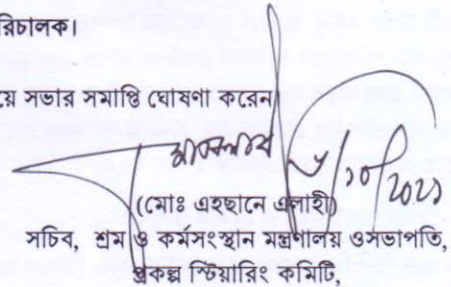 রিচালক।
য়ে সভার সমাপ্তি ঘোষণা করেন
/১০/2021
(মোঃ এহছানে এলাহী)
সচিব, শ্রম ও কর্মসংস্থান মন্ত্রণালয় ওসভাপতি,
প্রকল্প স্টিয়ারিং কমিটি,